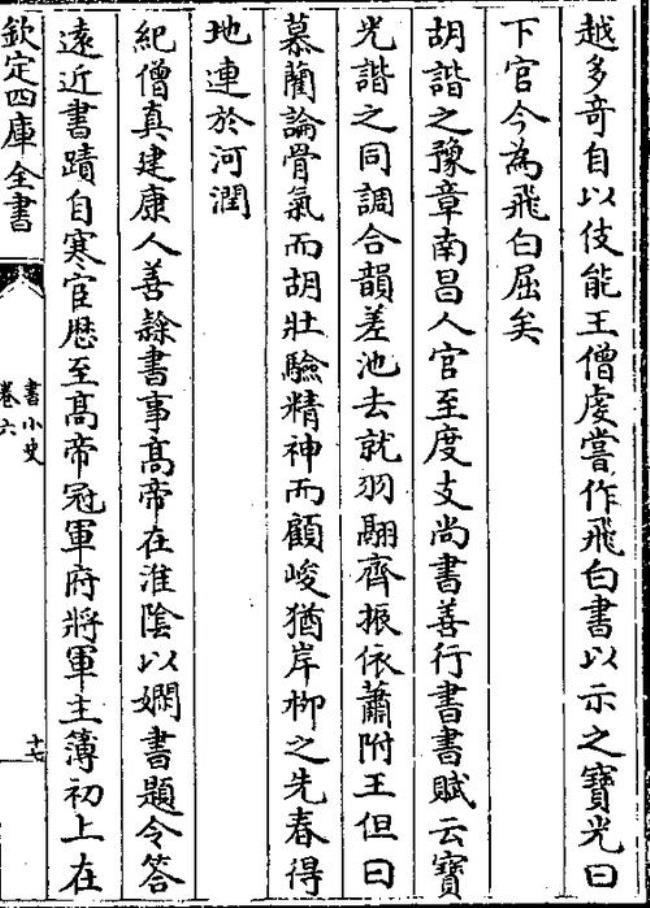 越多奇自以伎能王僧虔嘗作飛白書以示之寶光曰
下官今為飛白屈矣
胡諧之豫章南昌人官至度支尚書善行書書賦云寶
光諧之同調合韻差池去就羽翮齊振依蕭附王但曰
慕藺論骨氣而胡壯驗精神而顧峻猶岸柳之先春得
地連於河潤
紀僧真建康人善隸書事髙帝在淮隂以嫻書題令答
逺近書蹟自寒宦歴至髙帝冠軍府將軍主簿初上在
欽定四庫全書
書小史
卷六
十七